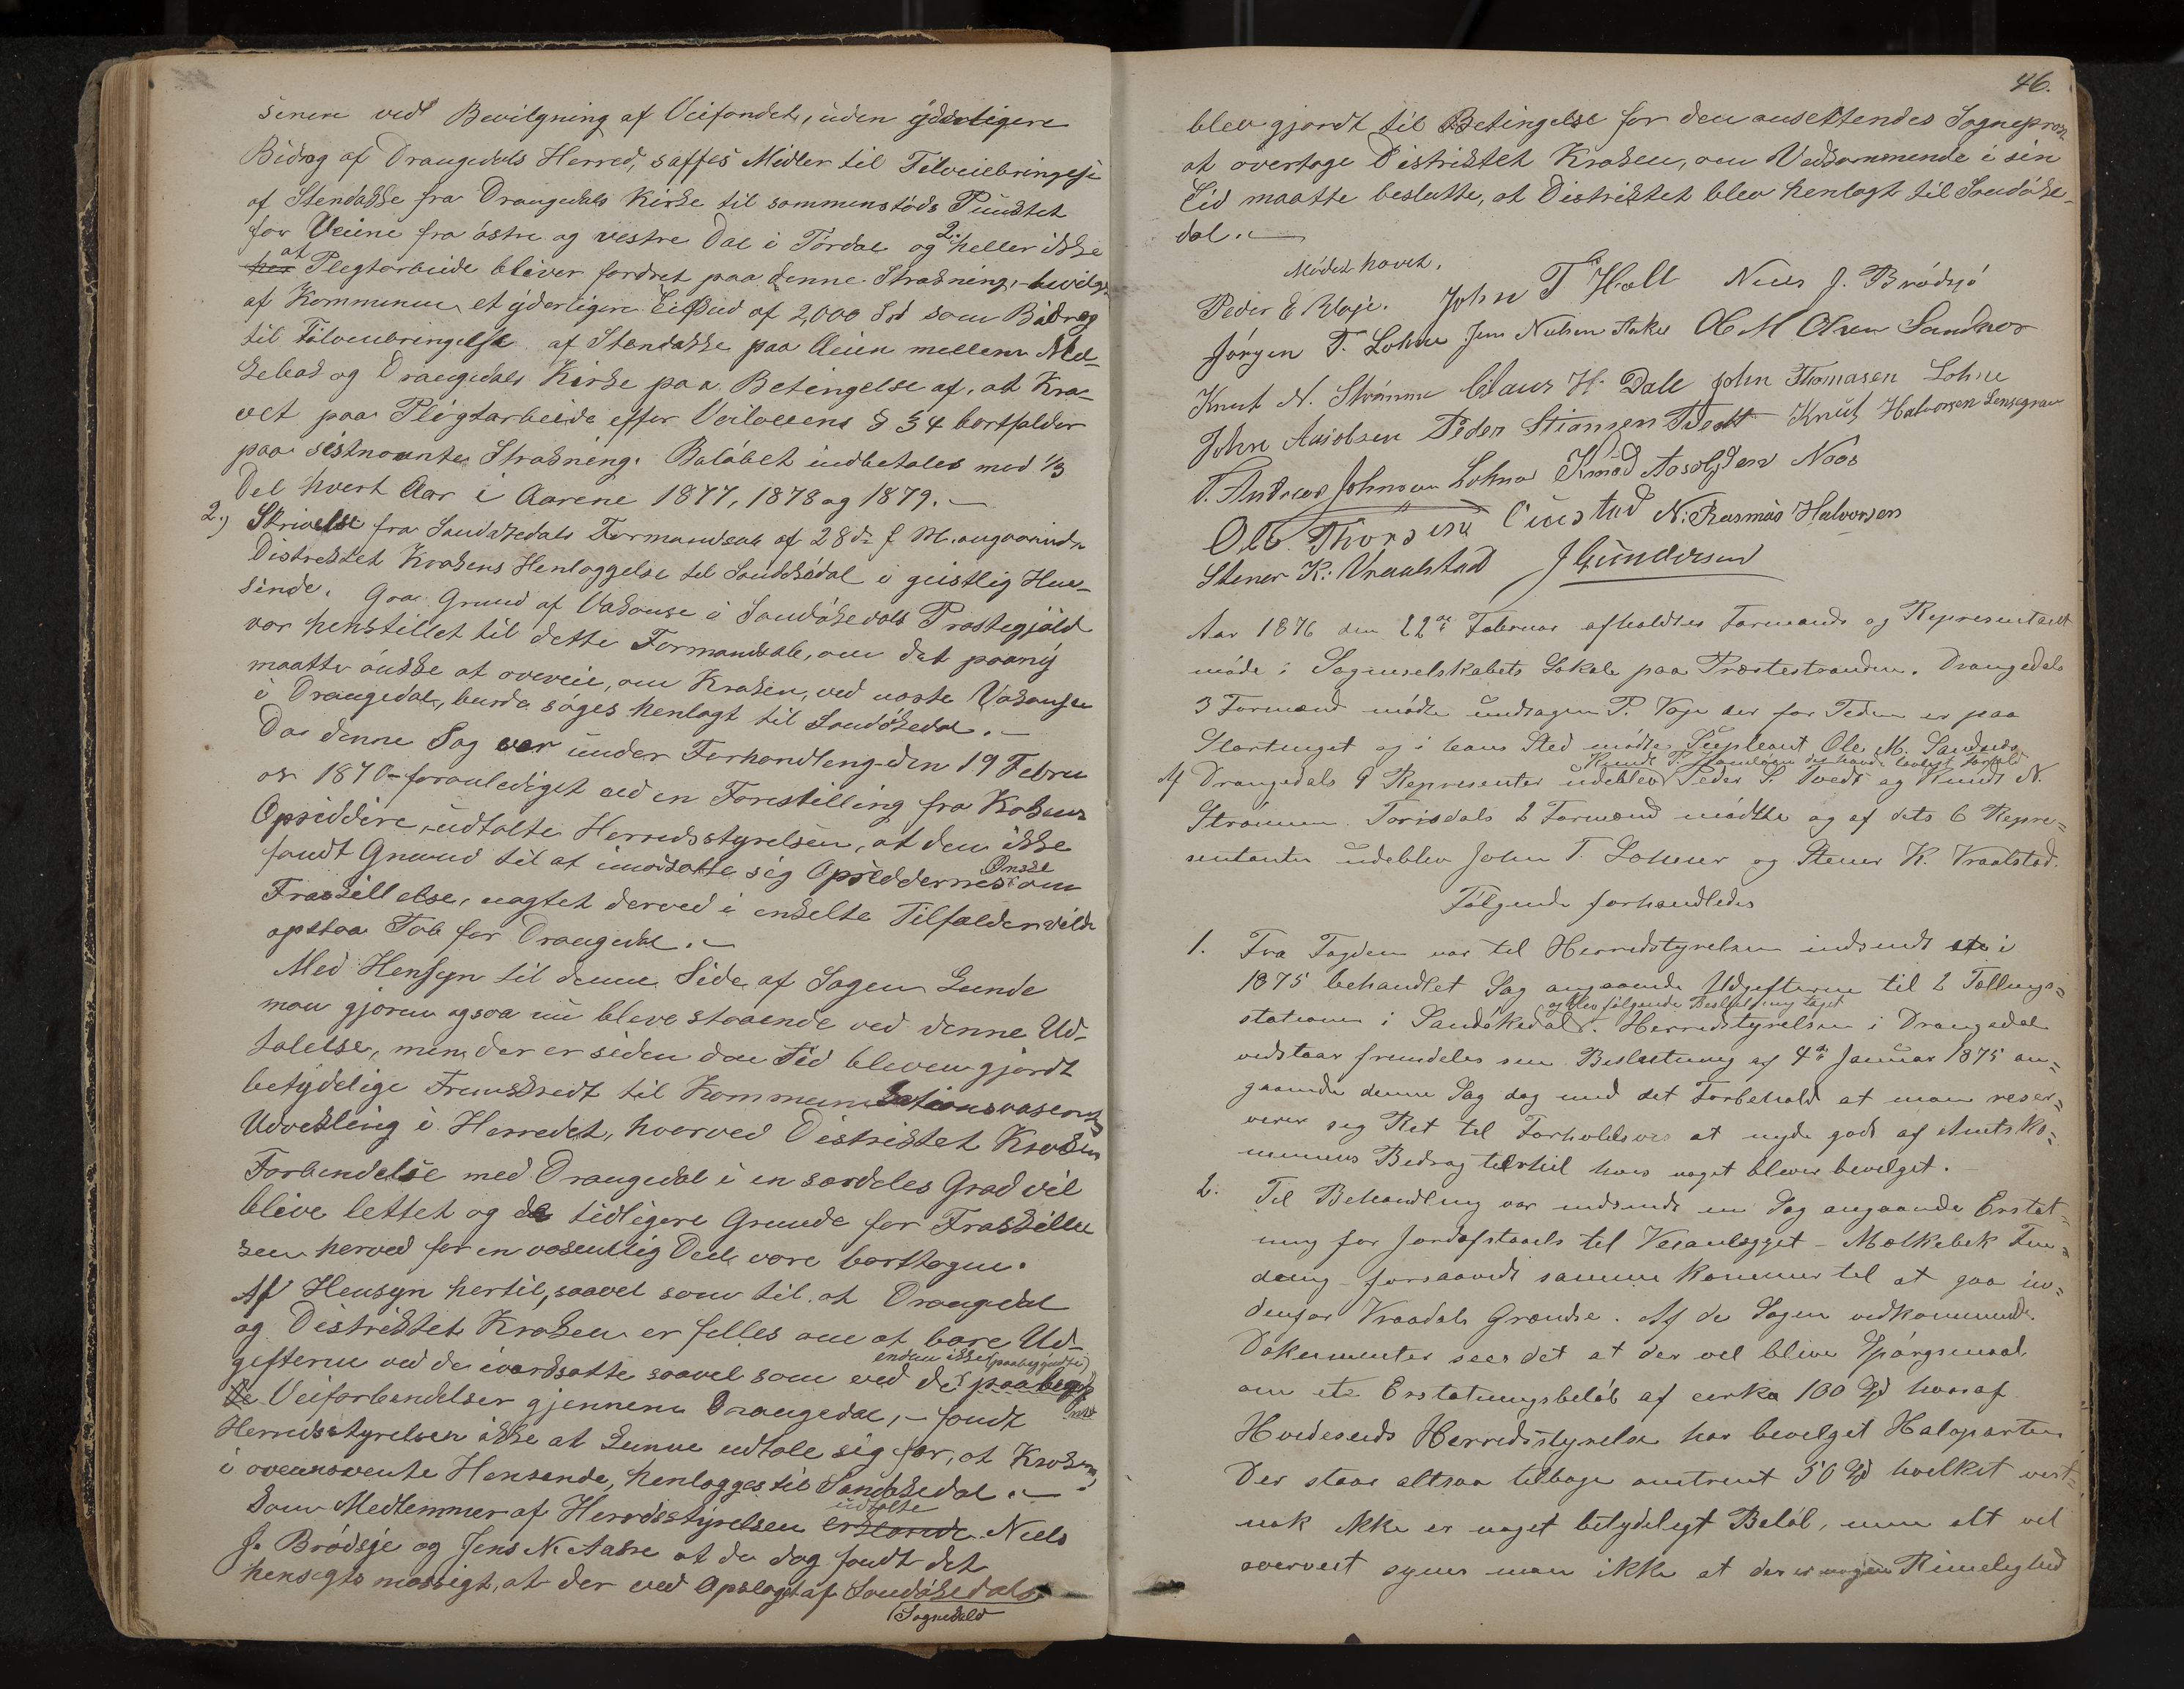 senere ved Bevilgning af Veifondet, uden yderligere
Bidrag af Drangedals Herred, saffes Midler til Tilveiebringelse
af Stendække fra Drangedals Kirke til sammenstöds Punktet
for Veiene fra östre og vestre Dal i Tördal og 2. heller ikke
at Pligtarbeide bliver fordret paa denne Strækning, - bevilges
af Kommunen et yderligere Tilskud af 2,000 Spd som Bidrag
til Tilveiebringelse af Stendække paa Veien mellem Mel-
kebæk og Drangedals Kirke paa Betingelse af, at Kra-
vet paa Pligtarbeide efter Veilovens § 34 bortfalder
paa sistnævnte Strækning. Belöbet indbetales med 1/3
Del hvert Aar i Aarene 1877, 1878 og 1879. -
2.) Skrivelse fra Sandökedals Formandskab af 28de f. M. angaaende
Distriktet Krokens Henlæggelse til Sandökedal i geistlig Hen-
sende. Paa Grund af Vakanse i Sandökedals Præstegjæld
var henstillet til dette Formandskab, om det paany
maatte önske at overveie, om Kroken, ved næste Vakanse
i Drangedal, burde söges henlagt til Sandökedal. -
Da denne Sag var under Forhandling den 19 Febru
ar 1870 - foranlediget ved en Forestilling fra Krokens
Opsiddere, udtalte Herredsstyrelsen, at den ikke
fandt Grund til at imodsætte sig Opsiddernes Önske om
Fraskillelse, uagtet derved i enkelte Tilfælder vilde
opstaa Tab for Drangedal. -
Med Hensyn til denne Side af Sagen kunde
man gjerne ogsaa nu blive staaende ved denne Ud-
talelse, men der er siden den Tid bleven gjordt
betydelige Fremskredt til Kommunikationsvæsenets
Udvikling i Herredet, hvorved Distriktet Kroken
Forbindelse med Drangedal i en særdeles Grad vil
blive lettet og de tidligere Grunde for Fraskillel
sen herved for en væsentlig Deel være borttagen.
Af Hensyn hertil, saavel som til at Drangedal
og Distriktet Kroken er fælles om at bære Ud-
gifterne ved de iværdsatte saavel som ved de endnu ikke paabegyndte
Veiforbindelser gjennem Drangedal, - fandt
Herredsstyrelsen ikke at kunne udtale sig for, at Kroken,
i ovennævnte Hensende, henlægges til Sandökedal. -
Som Medlemmer af Herredsstyrelsen udtalte Niels
J. Brödsjö og Jens N. Aakre at de dog fandt det
hensigtsmæssigt, at der ved Opslaget af Sandökedals
Sognekald
46.
blev gjordt til Betingelse for den ansettendes Sognepræst
at overtage Distriktet Kroken, om Vedkommende i sin
Tid maatte beslutte, at Distriktet blev henlagt til Sandöke-
dal. -
Mödet hævet.
Peder E Vaje. John T Hall Niels J. Brödsjö
Jörgen T. Lohne Jens Nielsen Aakre Ole M Olsen Sandnes
Knut N. Strömme Claus H. Dale John Thomasen Lohne
John Peder Stiansen Tvedt Knut Halvorsen
T. Andreas Johnsen Lohne Noes
Ole Thorsen N. Rasmus Halvorsen
Stener K. Vraalstad J Gundersen
Aar 1876 den 22de Februar afholdtes Formands og Representant
möde i Sogneselskabets Lokale paa Præstestranden. Drangedals
3 Formænd mödte undtagen P. Vaje der for Tiden er paa
Storthinget og i hans Sted mödte Supleant Ole M. Sandnes
Af Drangedals 9 Representer udeblev Peder S. Tvedt og Knudt N.
Strömme. Törisdals 2 Formænd mödtte og af dets 6 Repre=
sentanter udeblev John T. Lohne og Stener K. Vraalstad.
Fölgende forhandledes
1. Fra Fogden var til Herredstyrelsen indsendt i
1875 behandlet Sag angaaende Udgifterne til 2 Tællings=
og blev fölgende Beslutning taget
stationer i Sandökedal. Herredstyrelsen i Drangedal
vedstaar fremdeles sin Beslutning af 4de Januar 1875 an=
gaaende denne Sag dog med det Forbehold at man reser=
verer sig Ret til Forholdsvis at nyde godt af Amtsko=
munens Bedrag til hvis noget bliver bevilget.
2. Til Behandling var indsendt en Sag angaaende Erstat=
ning for Jordafstaaels til Veianlægget - Mælkebek
forsaavidt samme kommer til at gaa in=
denfor Vraadals Grændse. Af de Sagen vedkommende
Dokumenter sees det at der vil blive Spörgsmaal
om et Erstatningsbelöb af cirka 100 Spd hvoraf
Hvideseids Herredsstyrelse har bevilget Halvparten
Der staar altsaa tilbage omtrent 50 Spd hvilket vist=
nok ikke er noget betydeligt Belöb, men alt vel
overveit synes man ikke at der er nogen Rimelighed